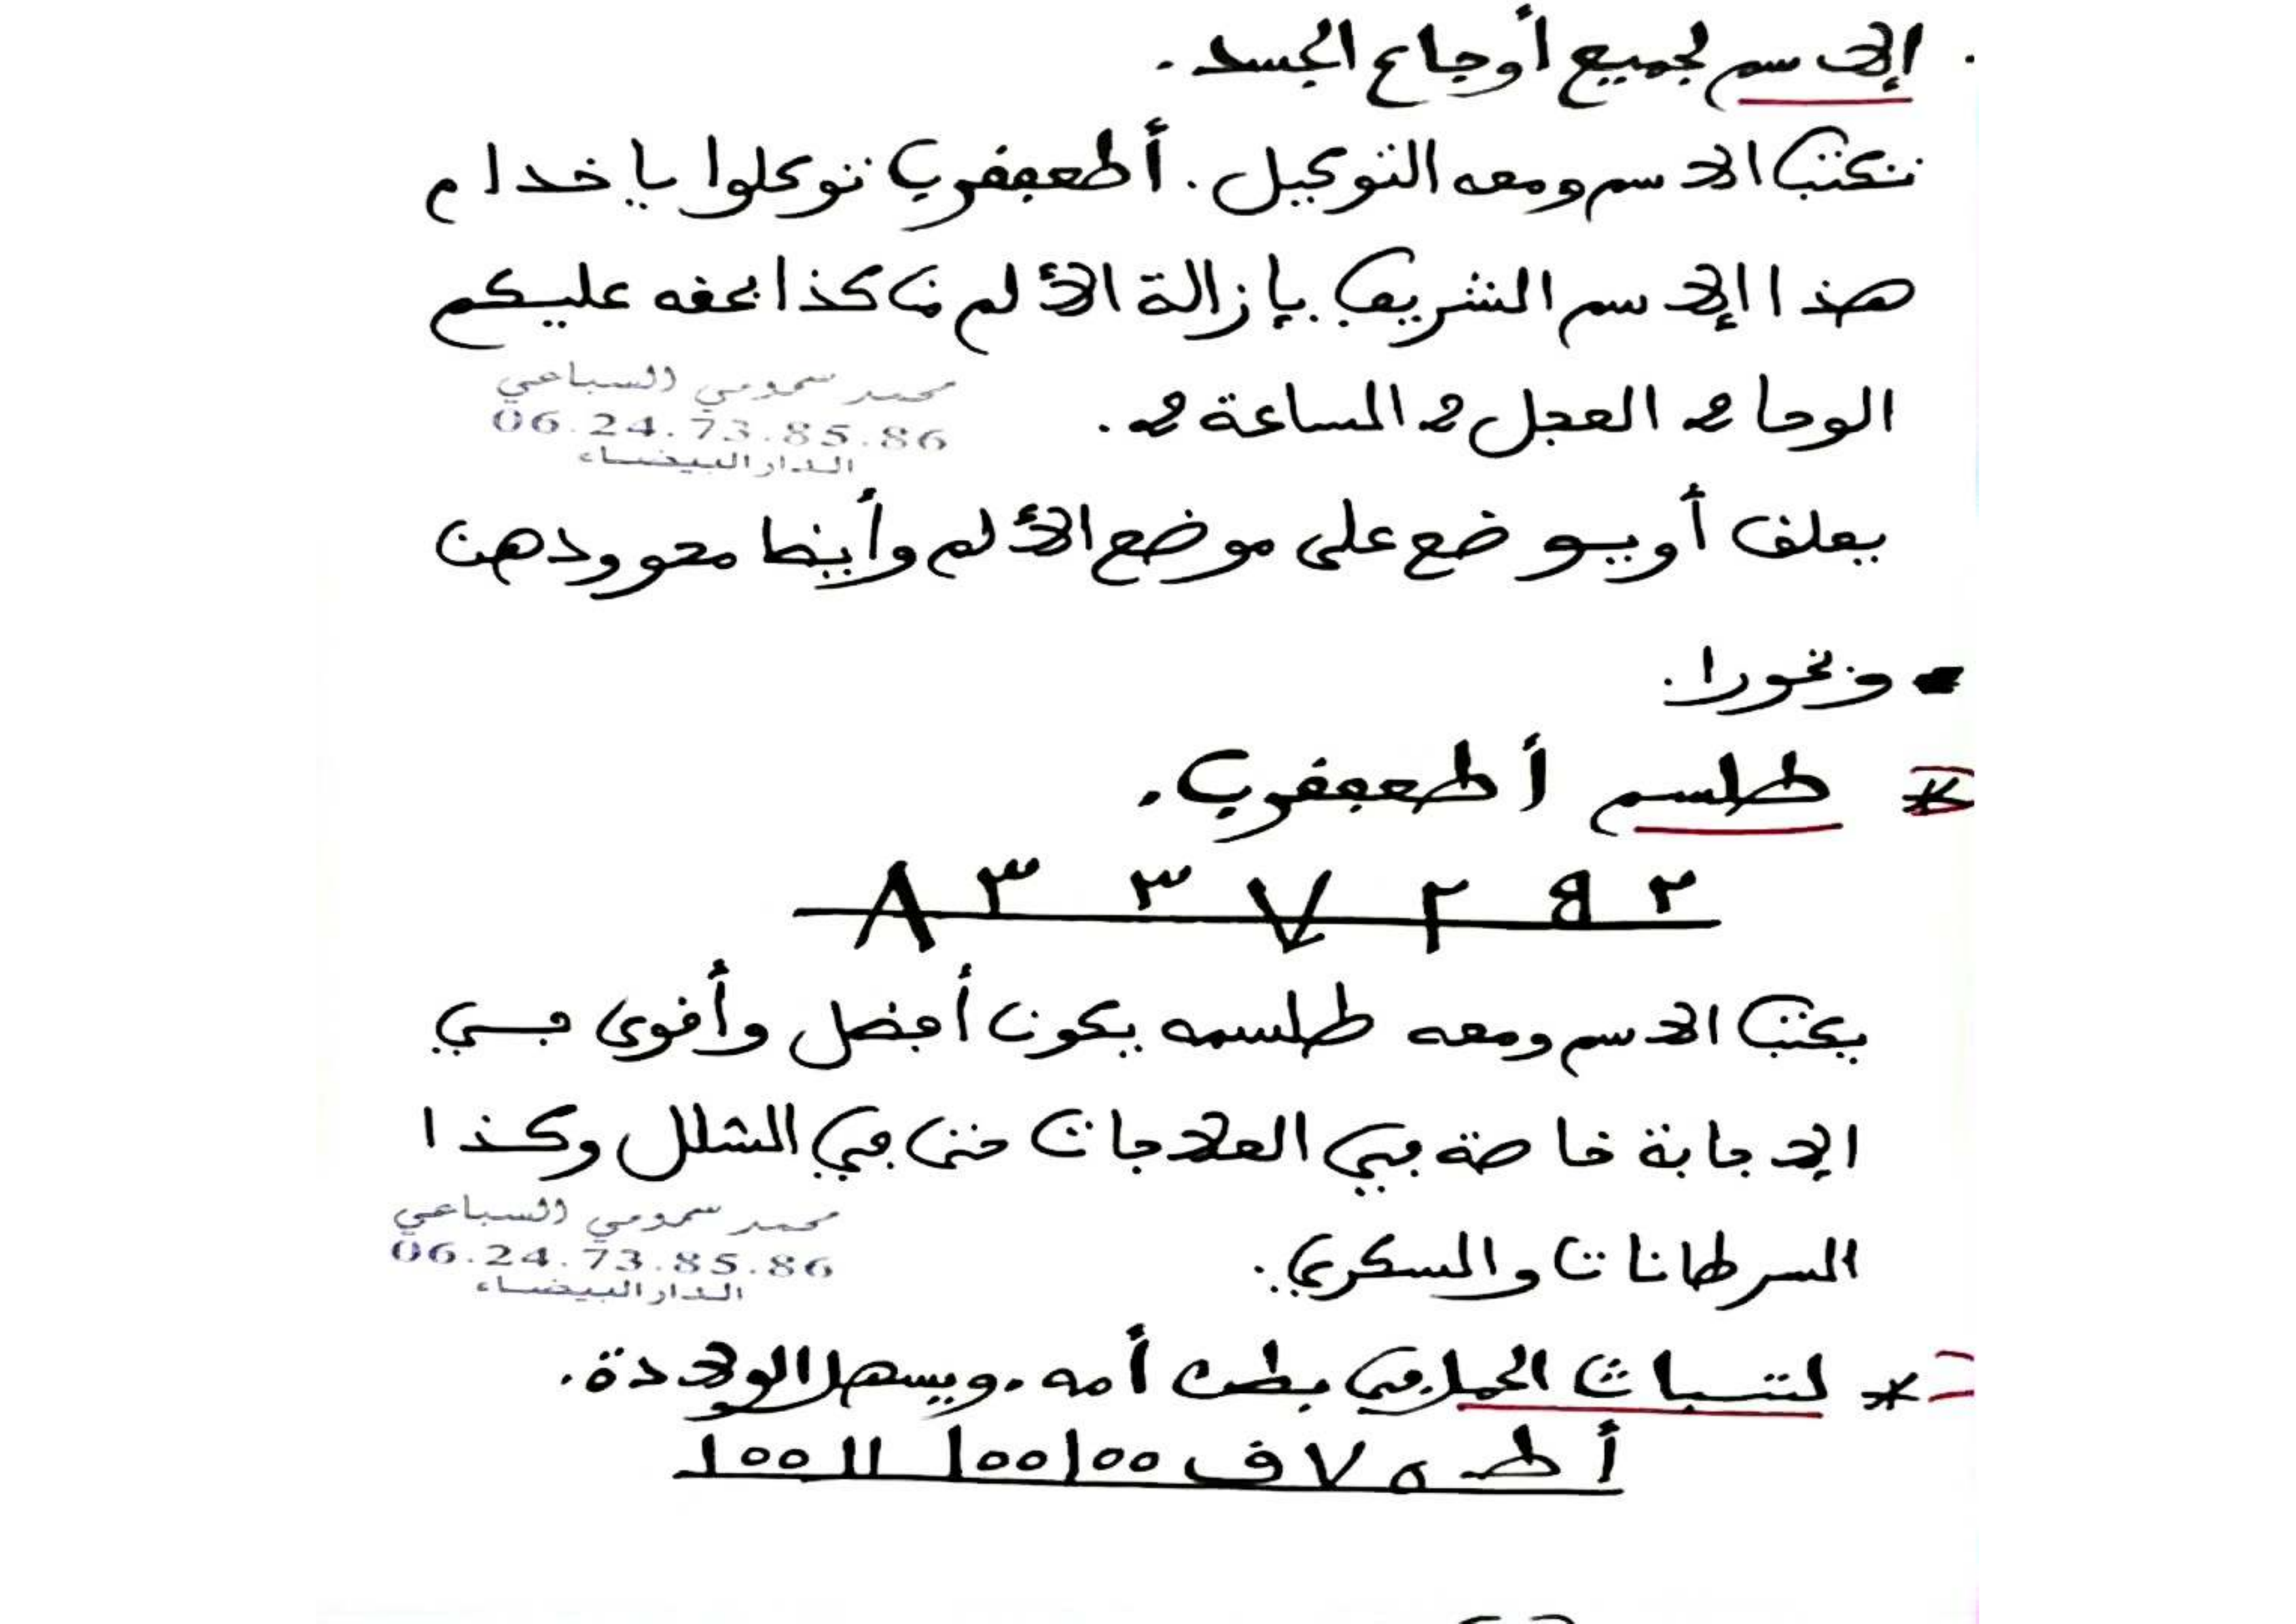 الإسم لجميع أوجاع الجسد.
تكتب الاسم ومعه التوكيل. أطعمفريب توكلوا يا خدام
هذا الإسم الشريف بإزالة الألم من كذا بحقه عليكم
الوحا 2 العجل 2 الساعة 2.
محمد سمومي السباعي
06.24.73.85.86
الدار البيضاء
يعلق أو يوضع على موضع الألم وأيضا محو ودهن
وبخورا.
* طلسم أطعمفريب.
٨ ٣ ٣ ٧ ٢ 8 ٢
يكتب الاسم ومعه طلسمه يكون أفضل وأقوى في
الإجابة خاصة في العلاجات حتى في الشلل وكذا
السرطانات والسكري.
محمد سمومي السباعي
06.24.73.85.86
الدار البيضاء
* لتبات الحمل في بطن أمه. ويسهل الولادة.